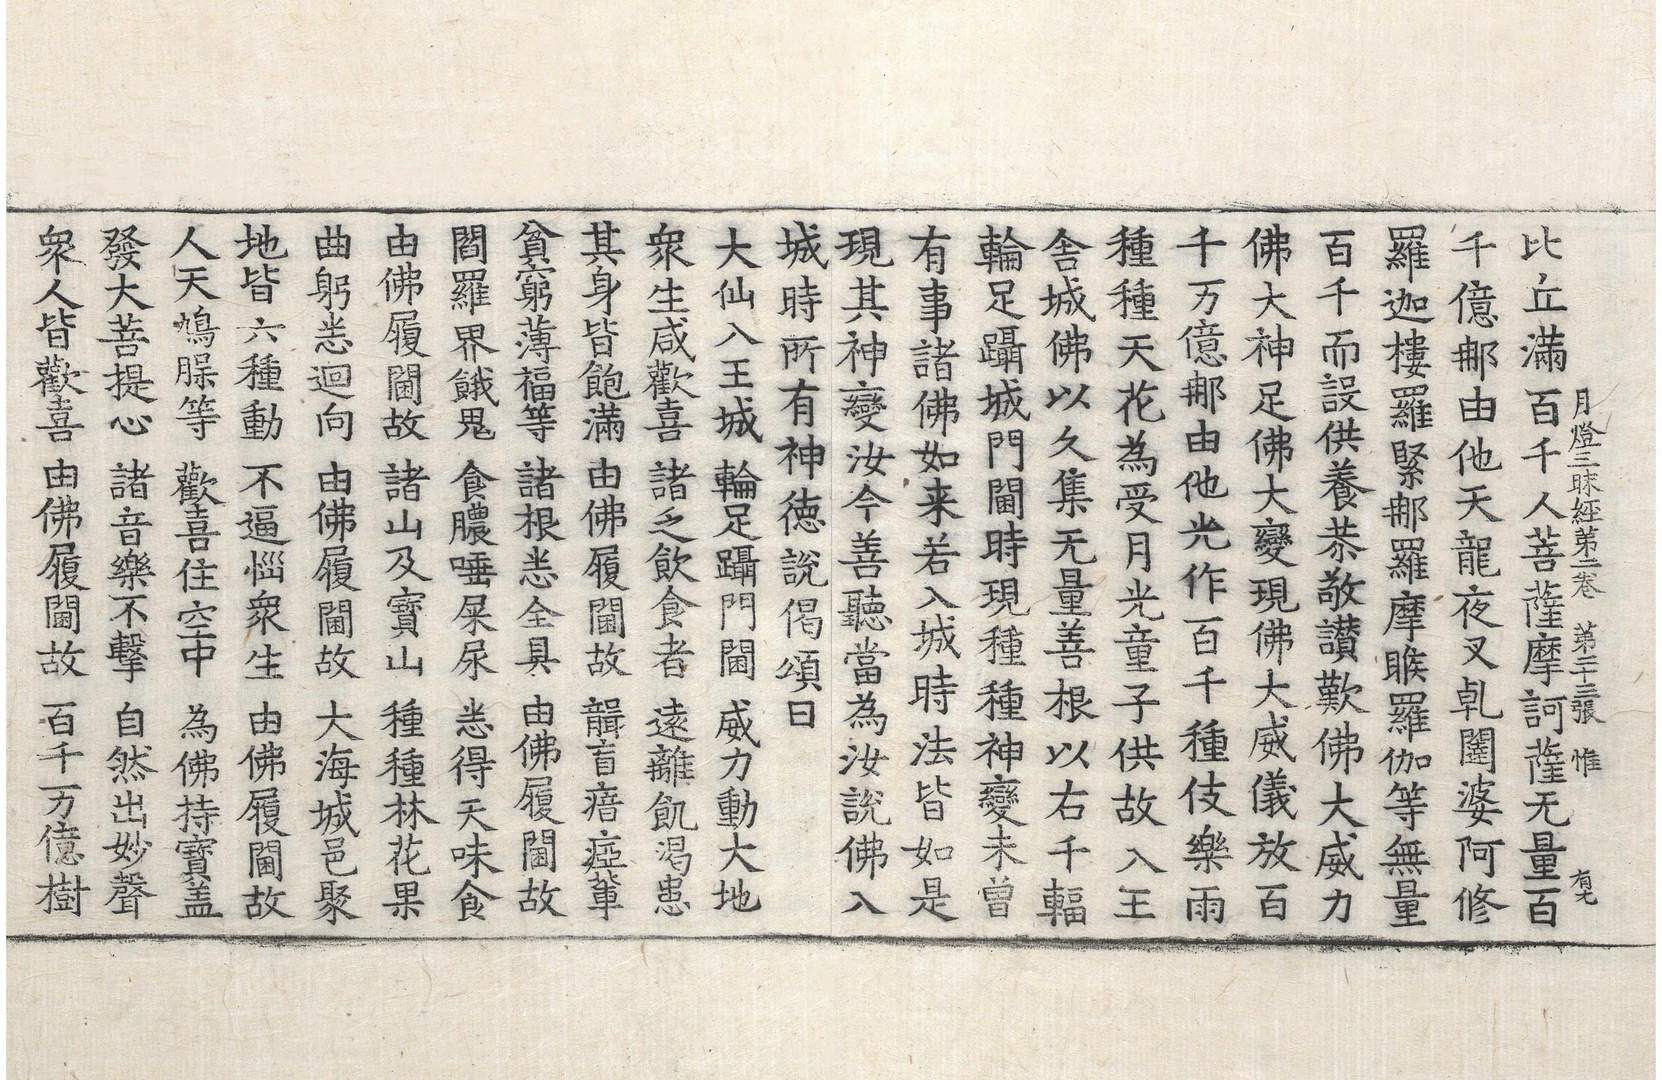 月燈三昧經第二卷　第二十三張　惟
比丘滿百千人菩薩摩訶薩无量百
千億那由他天龍夜叉乹闥婆阿修
羅迦樓羅緊那羅摩睺羅伽等無量
百千而設供養恭敬讃歎佛大威力
佛大神足佛大變現佛大威儀放百
千万億那由他光作百千種伎樂雨
種種天花為受月光童子供故入王
舍城佛以久集无量善根以右千輻
輪足躡城門閫時現種種神變未曾
有事諸佛如来若入城時法皆如是
現其神變汝今善聽當為汝說佛入
城時所有神徳說偈頌曰
大仙入王城　輪足躡門閫　威力動大地
衆生咸歡喜　諸乏飲食者　遠離飢渴患
其身皆飽滿　由佛履閫故　聾盲瘖瘂軰
貧窮薄福等　諸根悉全具　由佛履閫故
閻羅界餓鬼　食膿唾屎尿　悉得天味食
由佛履閫故　諸山及寳山　種種林花果
曲躬悉迴向　由佛履閫故　大海城邑聚
地皆六種動　不逼惱衆生　由佛履閫故
人天鳩𦜕等　歡喜住空中　為佛持寳盖
發大菩提心　諸音樂不擊　自然出妙聲
衆人皆歡喜　由佛履閫故　百千万億樹